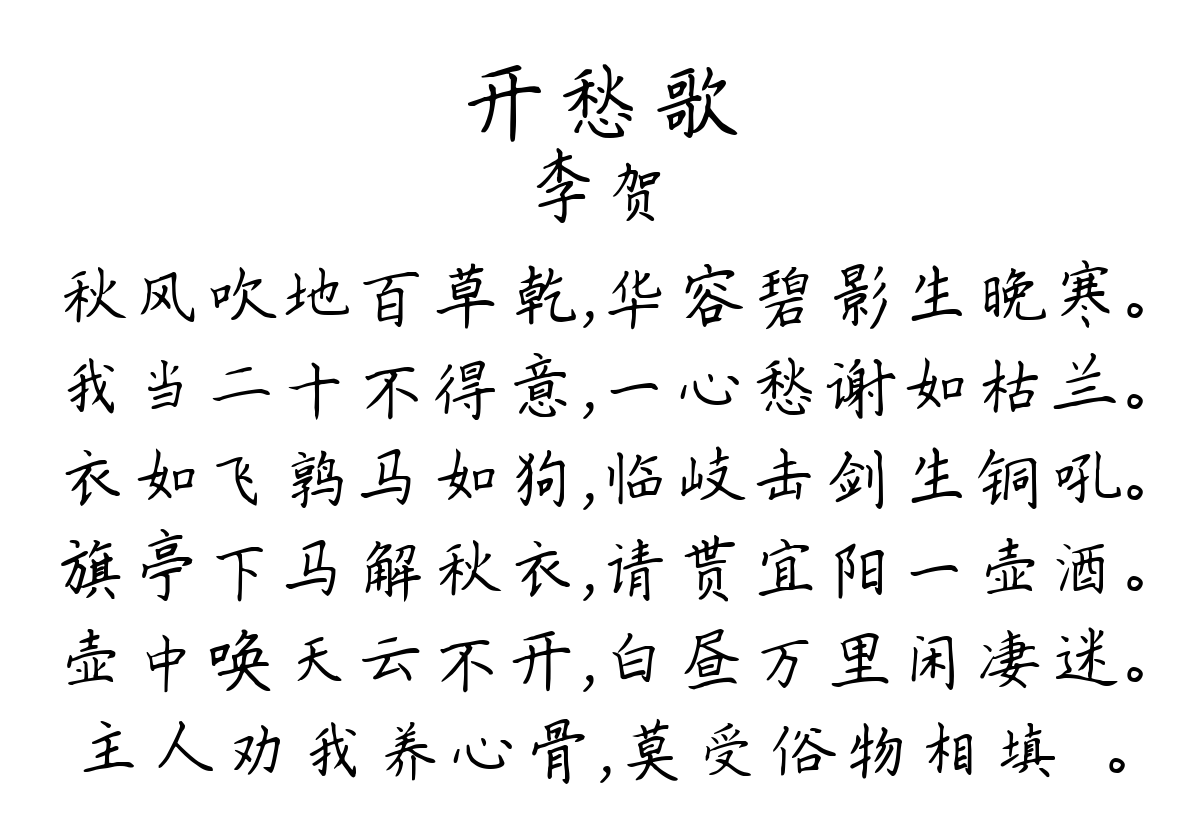 开愁歌
李贺
秋风吹地百草乾,华容碧影生晚寒。
我当二十不得意,一心愁谢如枯兰。
衣如飞鹑马如狗,临歧击剑生铜吼。
旗亭下马解秋衣,请贳宜阳一壶酒。
壶中唤天云不开,白昼万里闲凄迷。
主人劝我养心骨,莫受俗物相填 。